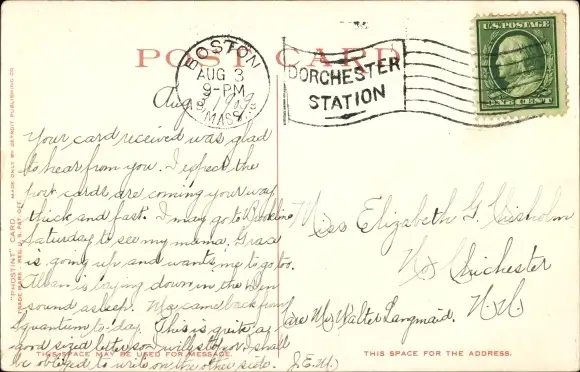 POST CARD
BOSTON
AUG 3
9-PM
1909
MASS.
DORCHESTER
STATION
U.S. POSTAGE
ONE CENT
"PHOSTINT" CARD
TRADE MARK - REG. U.S. PAT. OFF.
MADE ONLY BY DETROIT PUBLISHING CO.
Aug. 3, 1909
Your card received was glad
to hear from you. I expect the
post cards are coming your way
thick and fast. I may go to Brookline
Saturday to see my mama. Grace
is going up and wants me to go too.
Alban is laying down in the den
sound asleep. Ma came back from
Squantum to-day. This is quite a
good sized letter so I will stop or I shall
be obliged to write on the other side. J.E.W.
THIS SPACE MAY BE USED FOR MESSAGE.
Miss Elizabeth G. Chisholm
No Chichester
N.H.
Care Mr Walter Langmaid.
THIS SPACE FOR THE ADDRESS.